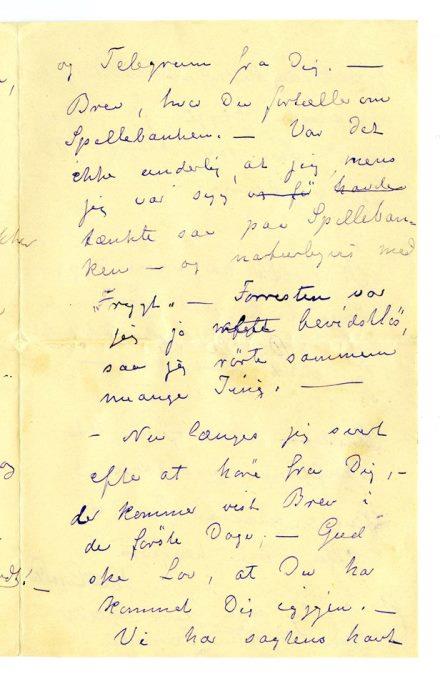 og Telegram fra Dig. —
Brev, hvor Du fortæller om
Spillebanken. — Var det
ikke underlig, at jeg, mens
jeg var syg havde
tænkte saa paa Spilleban-
ken — og naturligvis med
"Frygt". — Forresten var
jeg jo bevidstlös,
saa jeg rörte sammen
mange Ting. —
— Nu længes jeg svært
efter at höre fra Dig, —
der kommer vist Brev i
de förste Dage, — Gud
ske Lov, at Du har
kommet Dig igjen. —
Vi har sagtens havt